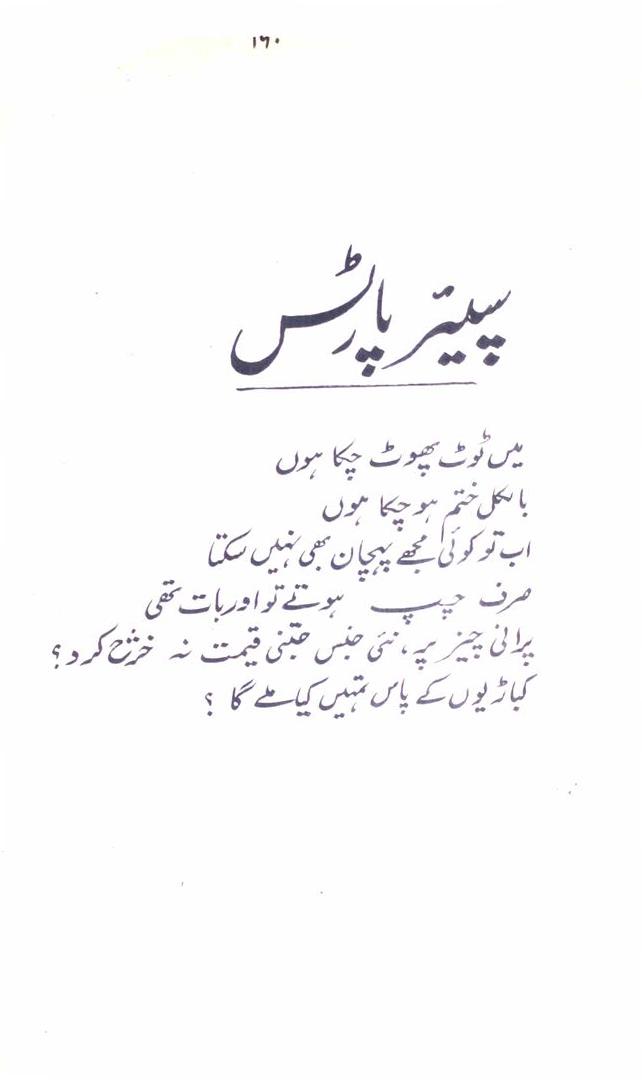 ۱۶۰
سپیئر پارٹس
میں ٹوٹ پھوٹ چکا ہوں
بالکل ختم ہو چکا ہوں
اب تو کوئی مجھے پہچان بھی نہیں سکتا
صرف چپ ہوتے تو اور بات تھی
پرانی چیز پر، نئی جنس جتنی قیمت نہ خرچ کرد؟
کباڑیوں کے پاس تمہیں کیا ملے گا ؟